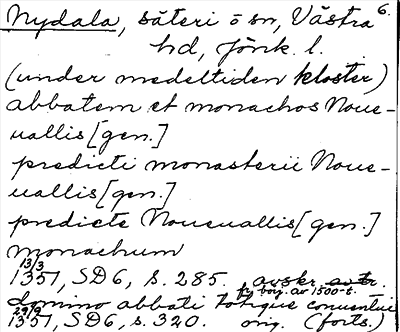 Nydala, säteri o sn, Västra 6.
hd, Jönk. l.
(under medeltiden kloster)
abbatem et monachos Noue-
uallis [gen.]
predicti monasterii Noue-
uallis [gen.]
predicte Noueuallis [gen.]
monachum
13/3
1351, SD6, s. 285. avskr.
fr. börj. av 1500-t.
domino abbati totique conuentui
29/9
1351, SD6, s. 320. orig. (forts.)